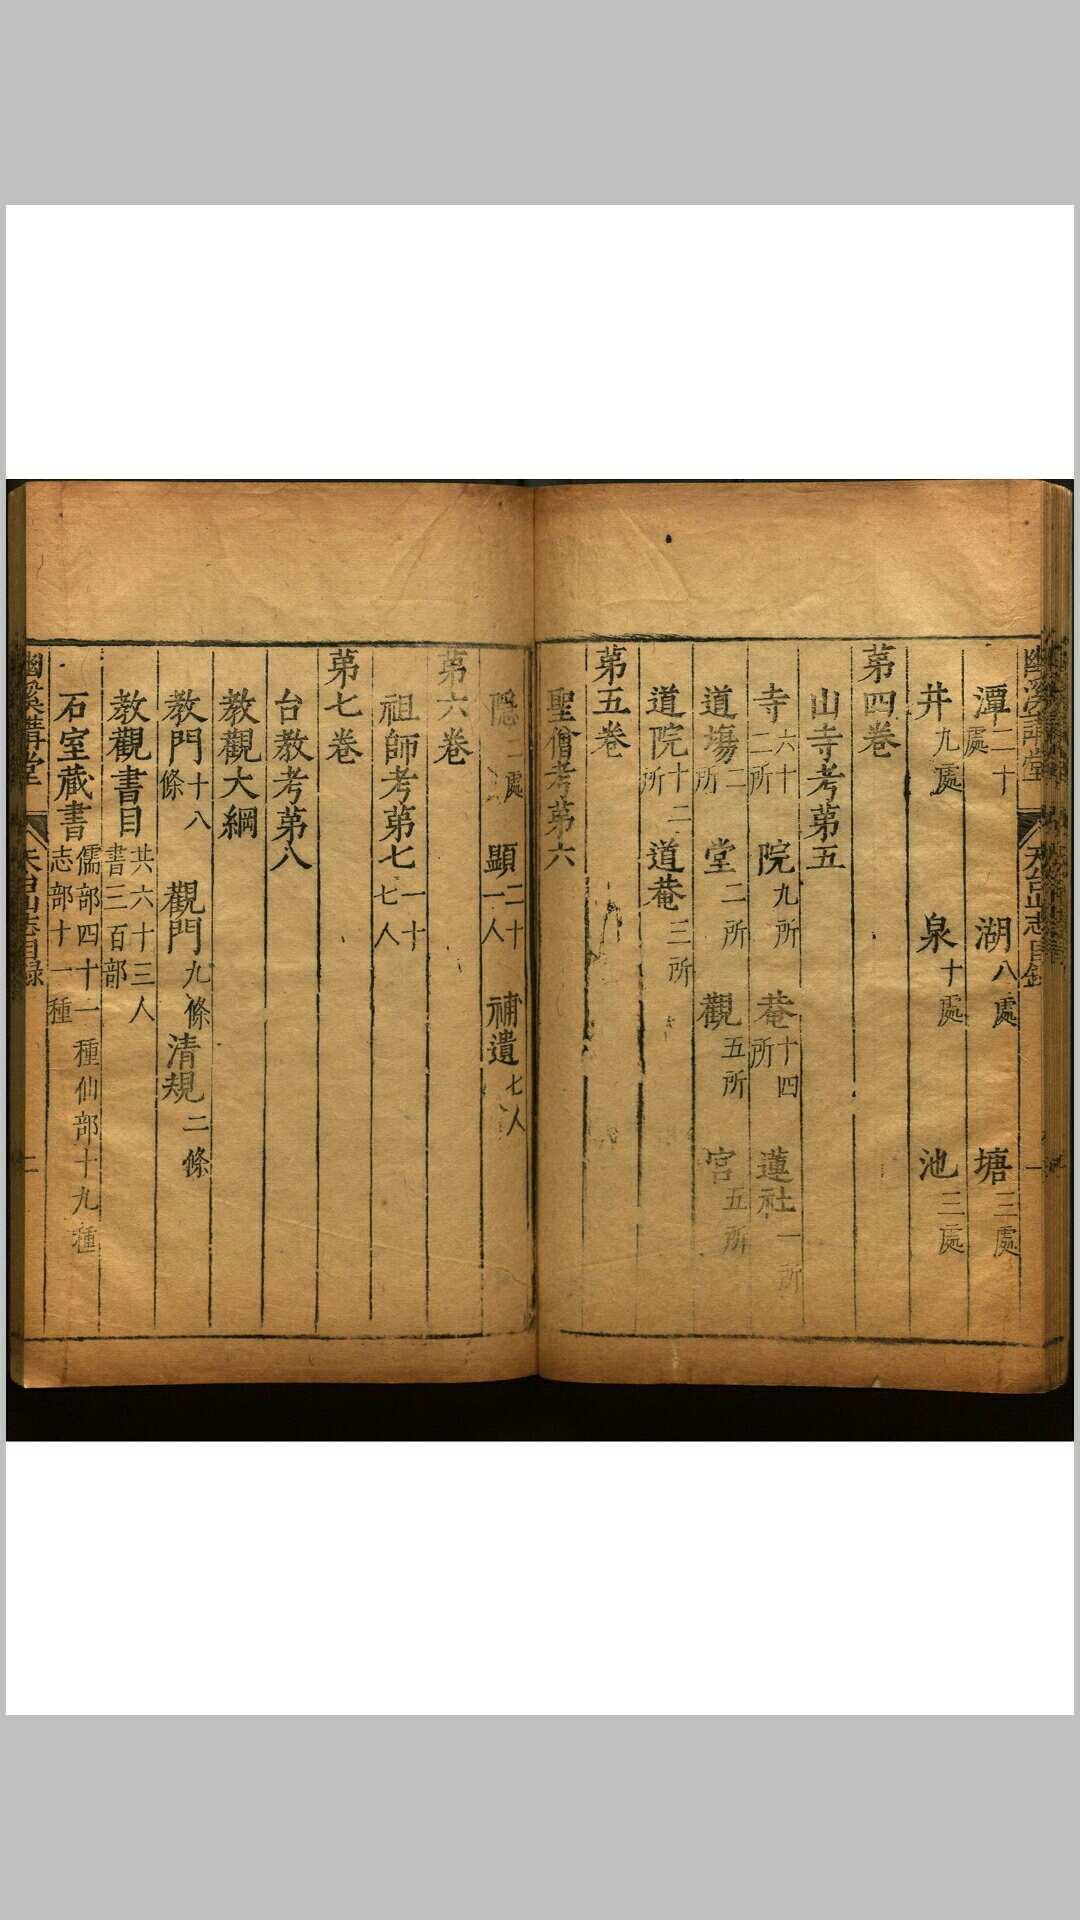 潭二十處 湖八處 塘三處
井九處 泉十處 池三處
第四卷
山寺考第五
寺六十二所 院九所 菴十四所 蓮社一所
道塲二所 堂二所 觀五所 宮五所
道院十二所 道菴三所
第五卷
聖僧考第六
隱二處 顯二十一人 補遺七人
第六卷
祖師考第七一十七人
第七卷
台教考第八
教觀大綱
教門十八條 觀門九條 清規二條
教觀書目共六十三人書三百部
石室藏書儒部四十一種仙部十九種志部十一種
幽溪講堂 天台山志目録 二